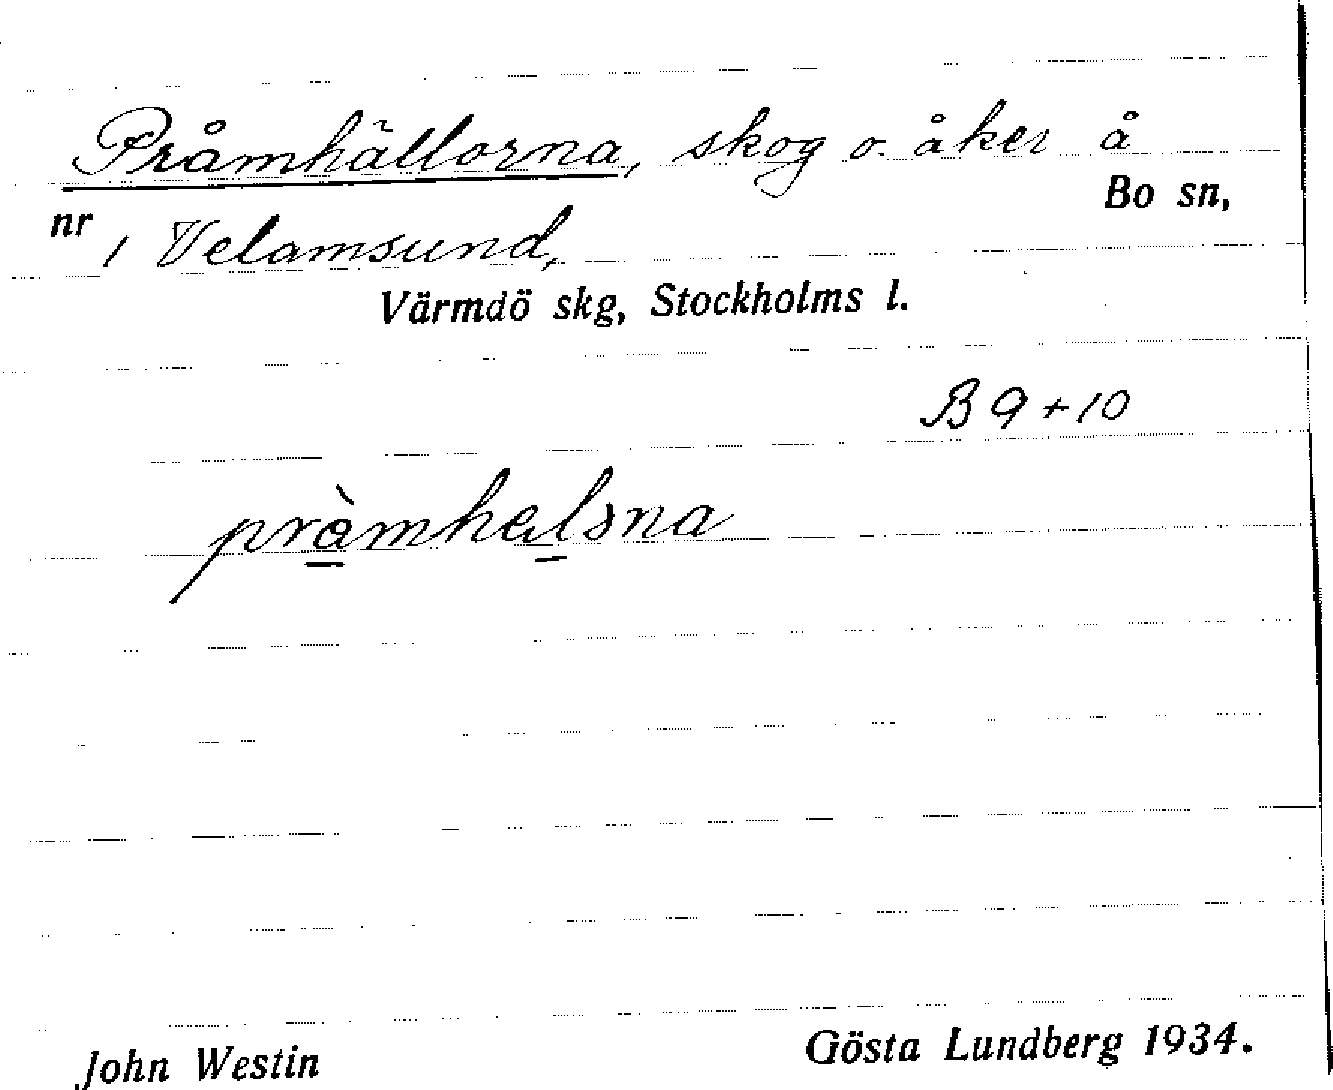 Pråmhällorna, skog o. åker å
Bo sn,
nr 1 Velamsund,
Värmdö skg, Stockholms l.
B 9 + 10
pràmhalsna
John Westin
Gösta Lundberg 1934.